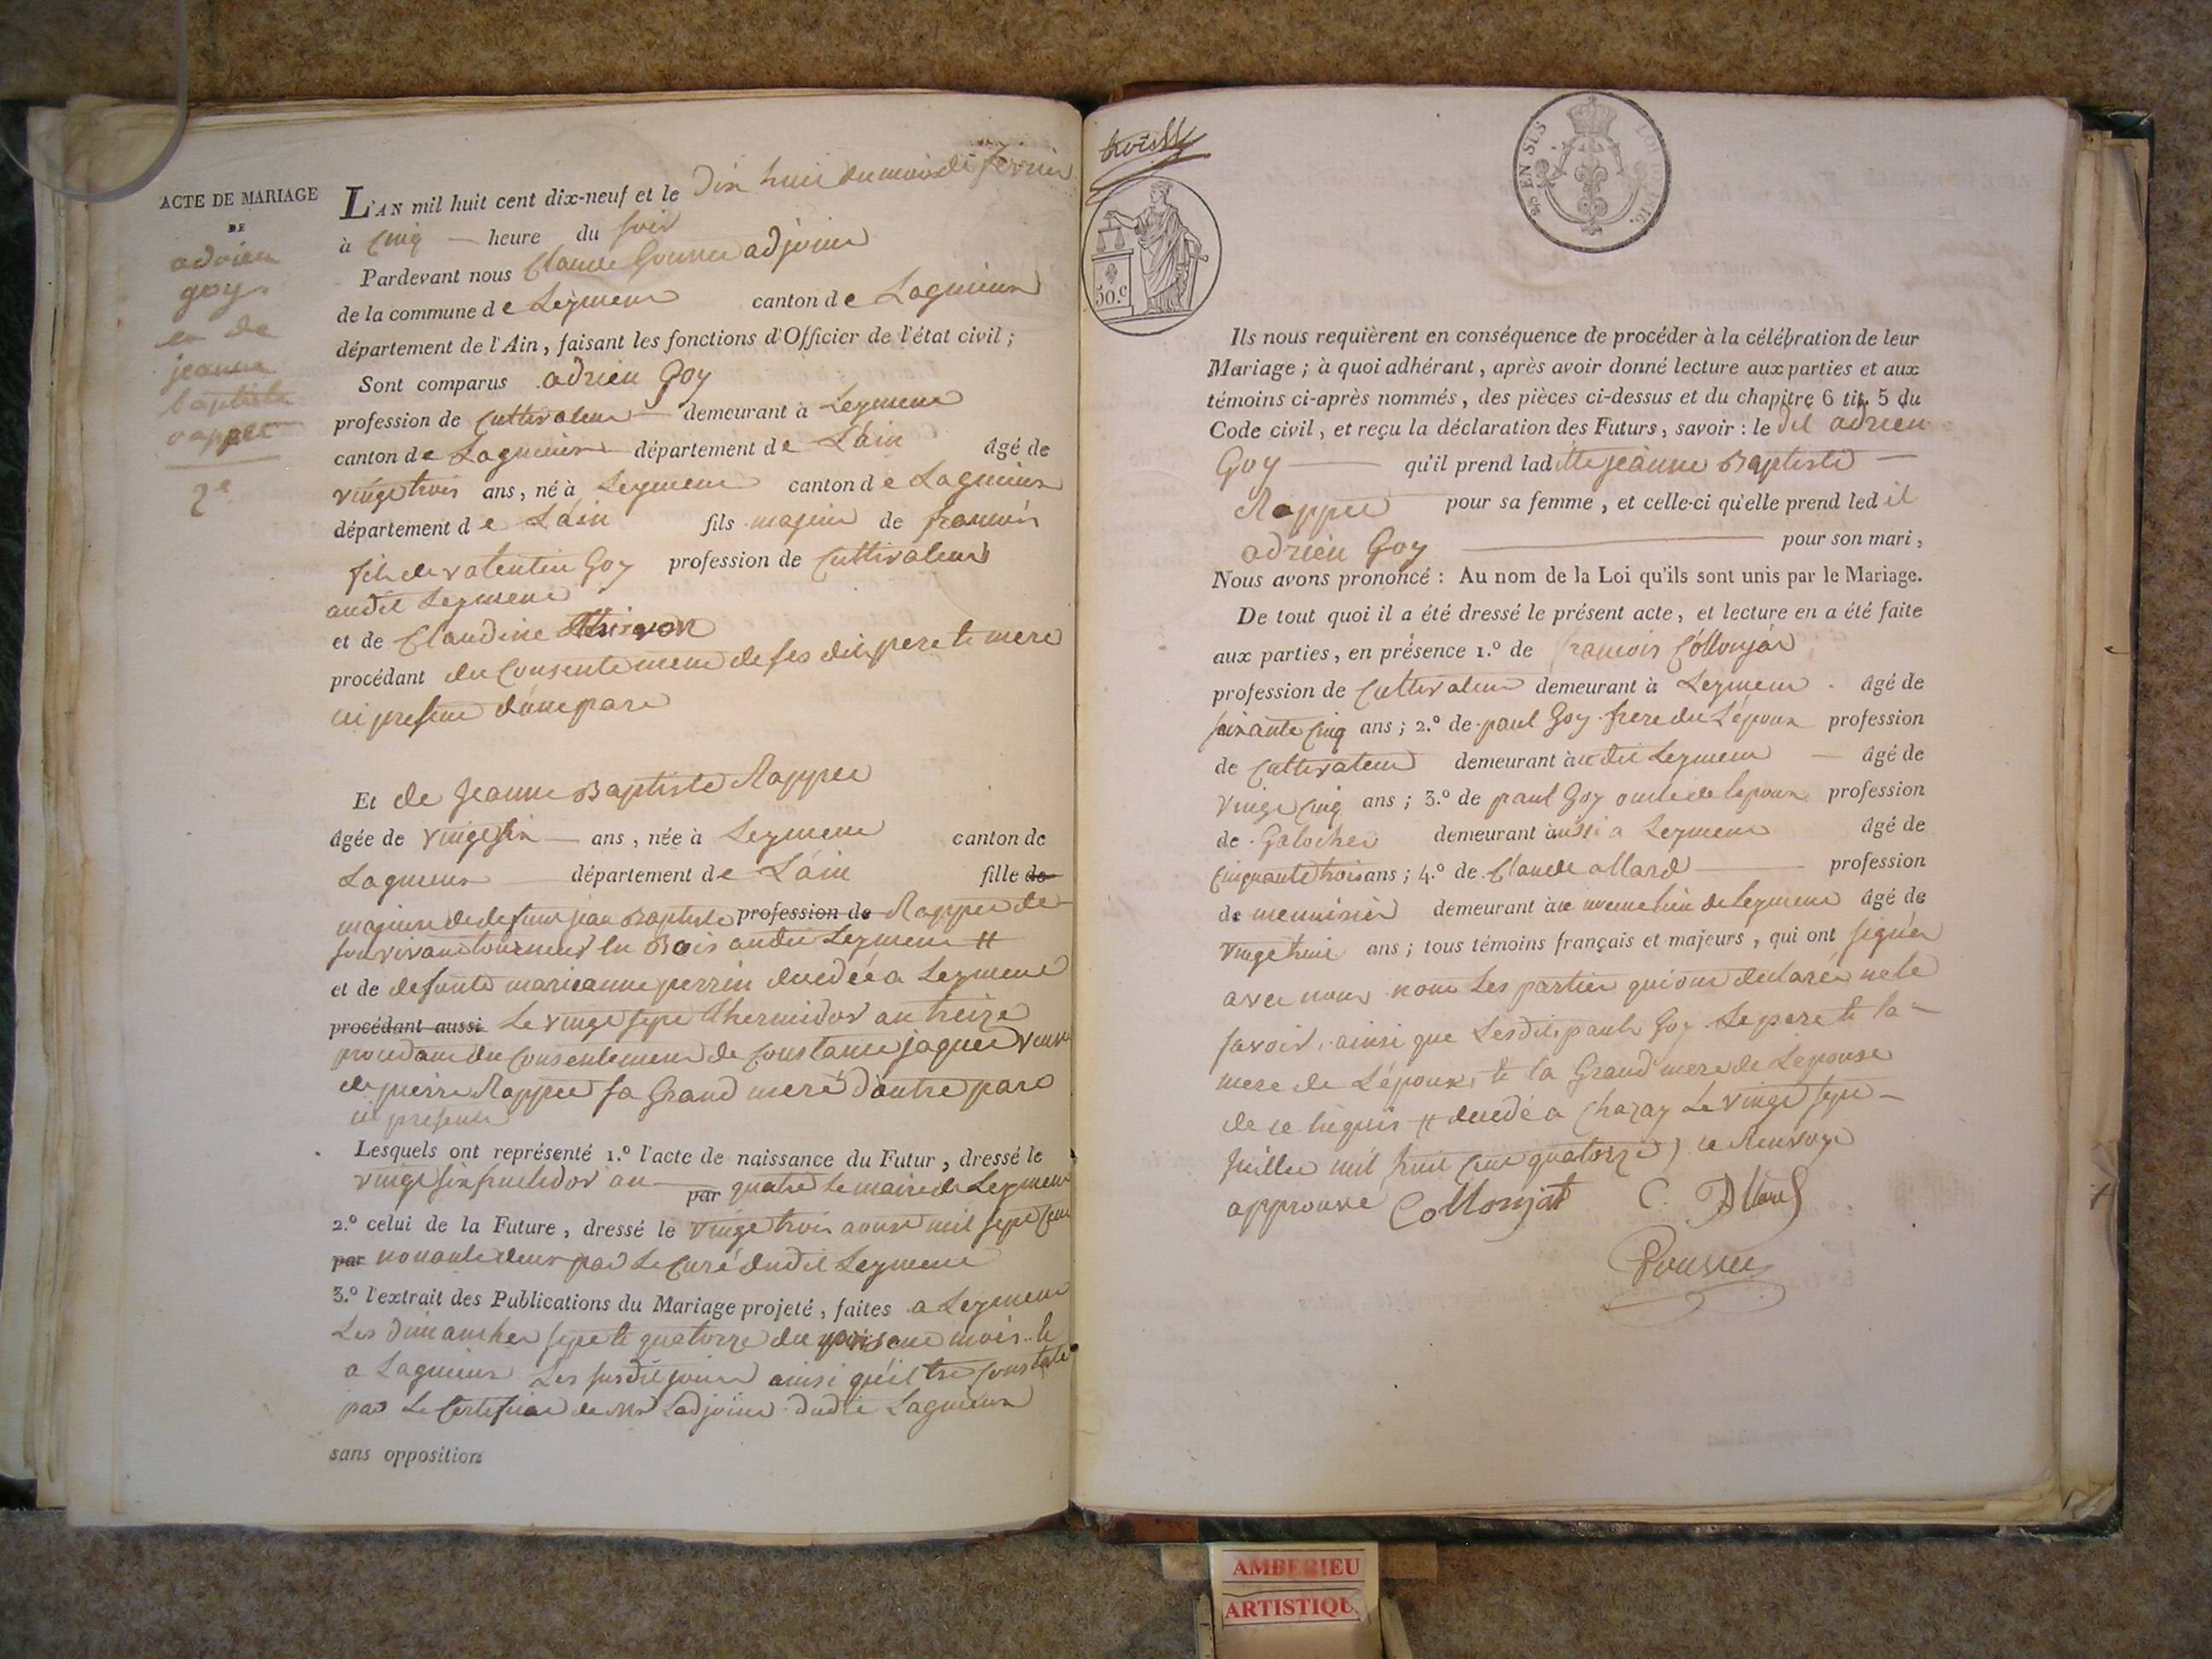 ACTE DE MARIAGE
DE
adrien
goy
et de
jeanne
baptiste
rappet
2e
L'AN mil huit cent dix-neuf et le Dix huit du mois de fevrier
à Cinq heure du soir
Pardevant nous Claude adjoint
de la commune de Leyment canton de Lagnieux
département de l'Ain, faisant les fonctions d'Officier de l'état civil;
Sont comparus adrien Goy
profession de Cultivateur demeurant à Leyment
canton de Lagnieux département de L'ain âgé de
vingt trois ans, né à Leyment canton de Lagnieux
département de L'ain fils majeur de francois
fils de valentin Goy profession de Cultivateur
audit Leyment
et de Claudine
procédant du Consentement de ses dits pere et mere
ici present d'une part
Et de Jeanne Baptiste Rappet
âgée de vingt six ans, née à Leyment canton de
Lagnieux département de L'ain fille de
majeure de defunt jean Baptiste profession de Rappet de
son vivant tourneur en Bois audit Leyment #
et de defunte marieanne perrin decedée a Leyment
procédant aussi Le vingt sept thermidor an treize
procedant du Consentement de Constance jaquet veuve
de pierre Rappet sa Grand mere d'autre part
ici presente
Lesquels ont représenté 1.º l'acte de naissance du Futur, dressé le
vingt six fructidor an par quatre le maire de Leyment
2.º celui de la Future, dressé le vingt trois aoust mil sept cent
par nonante deux par Le Curé dudit Leyment
3.º l'extrait des Publications du Mariage projeté, faites a Leyment
Les dimanches sept et quatorze du present mois et
a Lagnieux Les susdit jours ainsi qu'il est Constaté
par Le Certificat de Mr Ladjoint dudit Lagnieux
sans opposition
50.c
EN SUS
Ils nous requièrent en conséquence de procéder à la célébration de leur
Mariage; à quoi adhérant, après avoir donné lecture aux parties et aux
témoins ci-après nommés, des pièces ci-dessus et du chapitre 6 tit. 5 du
Code civil, et reçu la déclaration des Futurs, savoir: le dit adrien
Goy qu'il prend laditte jeanne Baptiste
Rappet pour sa femme, et celle-ci qu'elle prend ledit
adrien Goy pour son mari,
Nous avons prononcé: Au nom de la Loi qu'ils sont unis par le Mariage.
De tout quoi il a été dressé le présent acte, et lecture en a été faite
aux parties, en présence 1.º de francois Collomjat
profession de Cultivateur demeurant à Leyment âgé de
soixante Cinq ans; 2.º de paul Goy frere de L'époux profession
de Cultivateur demeurant audit Leyment âgé de
vingt Cinq ans; 3.º de paul Goy oncle de lepoux profession
de Galocher demeurant aussi a Leyment âgé de
Cinquante trois ans; 4.º de Claude allard profession
de menuisier demeurant au meme lieu de Leyment âgé de
vingt huit ans; tous témoins français et majeurs, qui ont signés
avec nous non Les parties qui ont declarés ne le
savoir, ainsi que Lesdits pauls Goy Le pere et la
mere de L'époux, et la Grand mere de Lepouse
de ce requis # decedé a Chazay Le vingt sept
juillet mil huit Cent quatorze) ce Renvoye
approuve Collomjat C. Allard